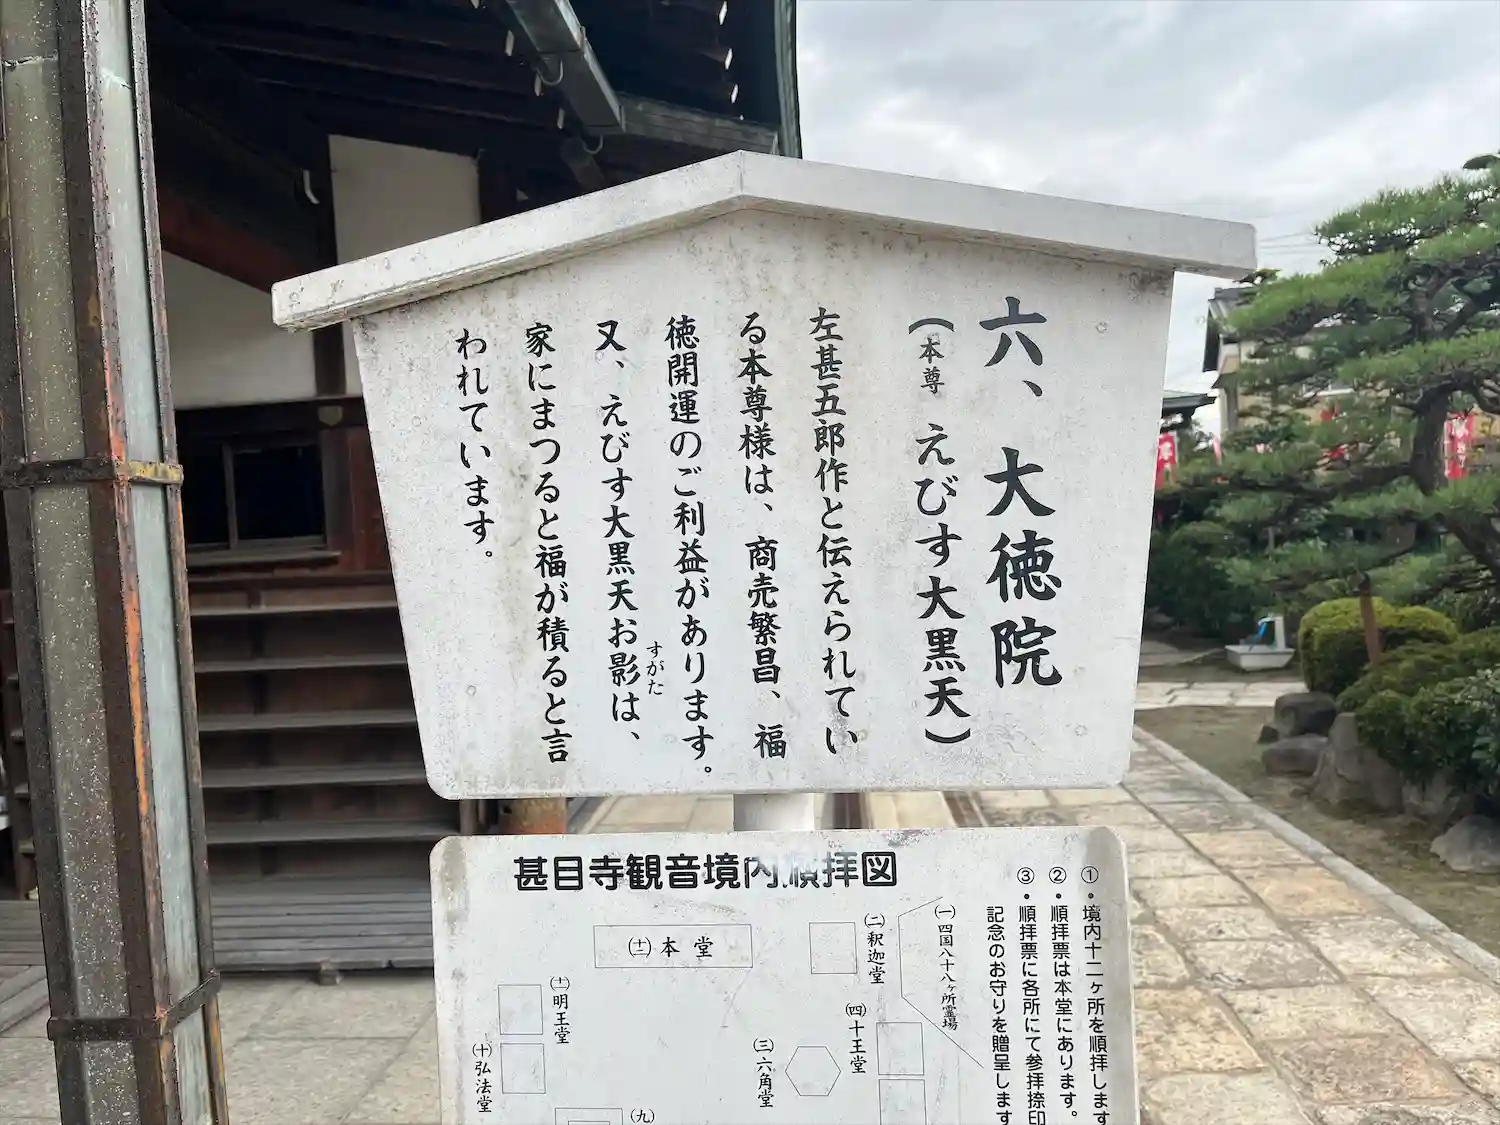 六、大徳院
(本尊 えびす大黒天)
左甚五郎作と伝えられてい
る本尊様は、商売繁昌、福
徳開運のご利益があります。
又、えびす大黒天お影は、
すがた
家にまつると福が積ると言
われています。
甚目寺観音境内順拝図
①・境内十二ヶ所を順拝します
②・順拝票は本堂にあります。
③・順拝票に各所にて参拝捺印
記念のお守りを贈呈します
(一)四国八十八ヶ所霊場
(二)釈迦堂
(十二)本堂
(四)十王堂
(三)六角堂
(十一)明王堂
(十)弘法堂
(九)